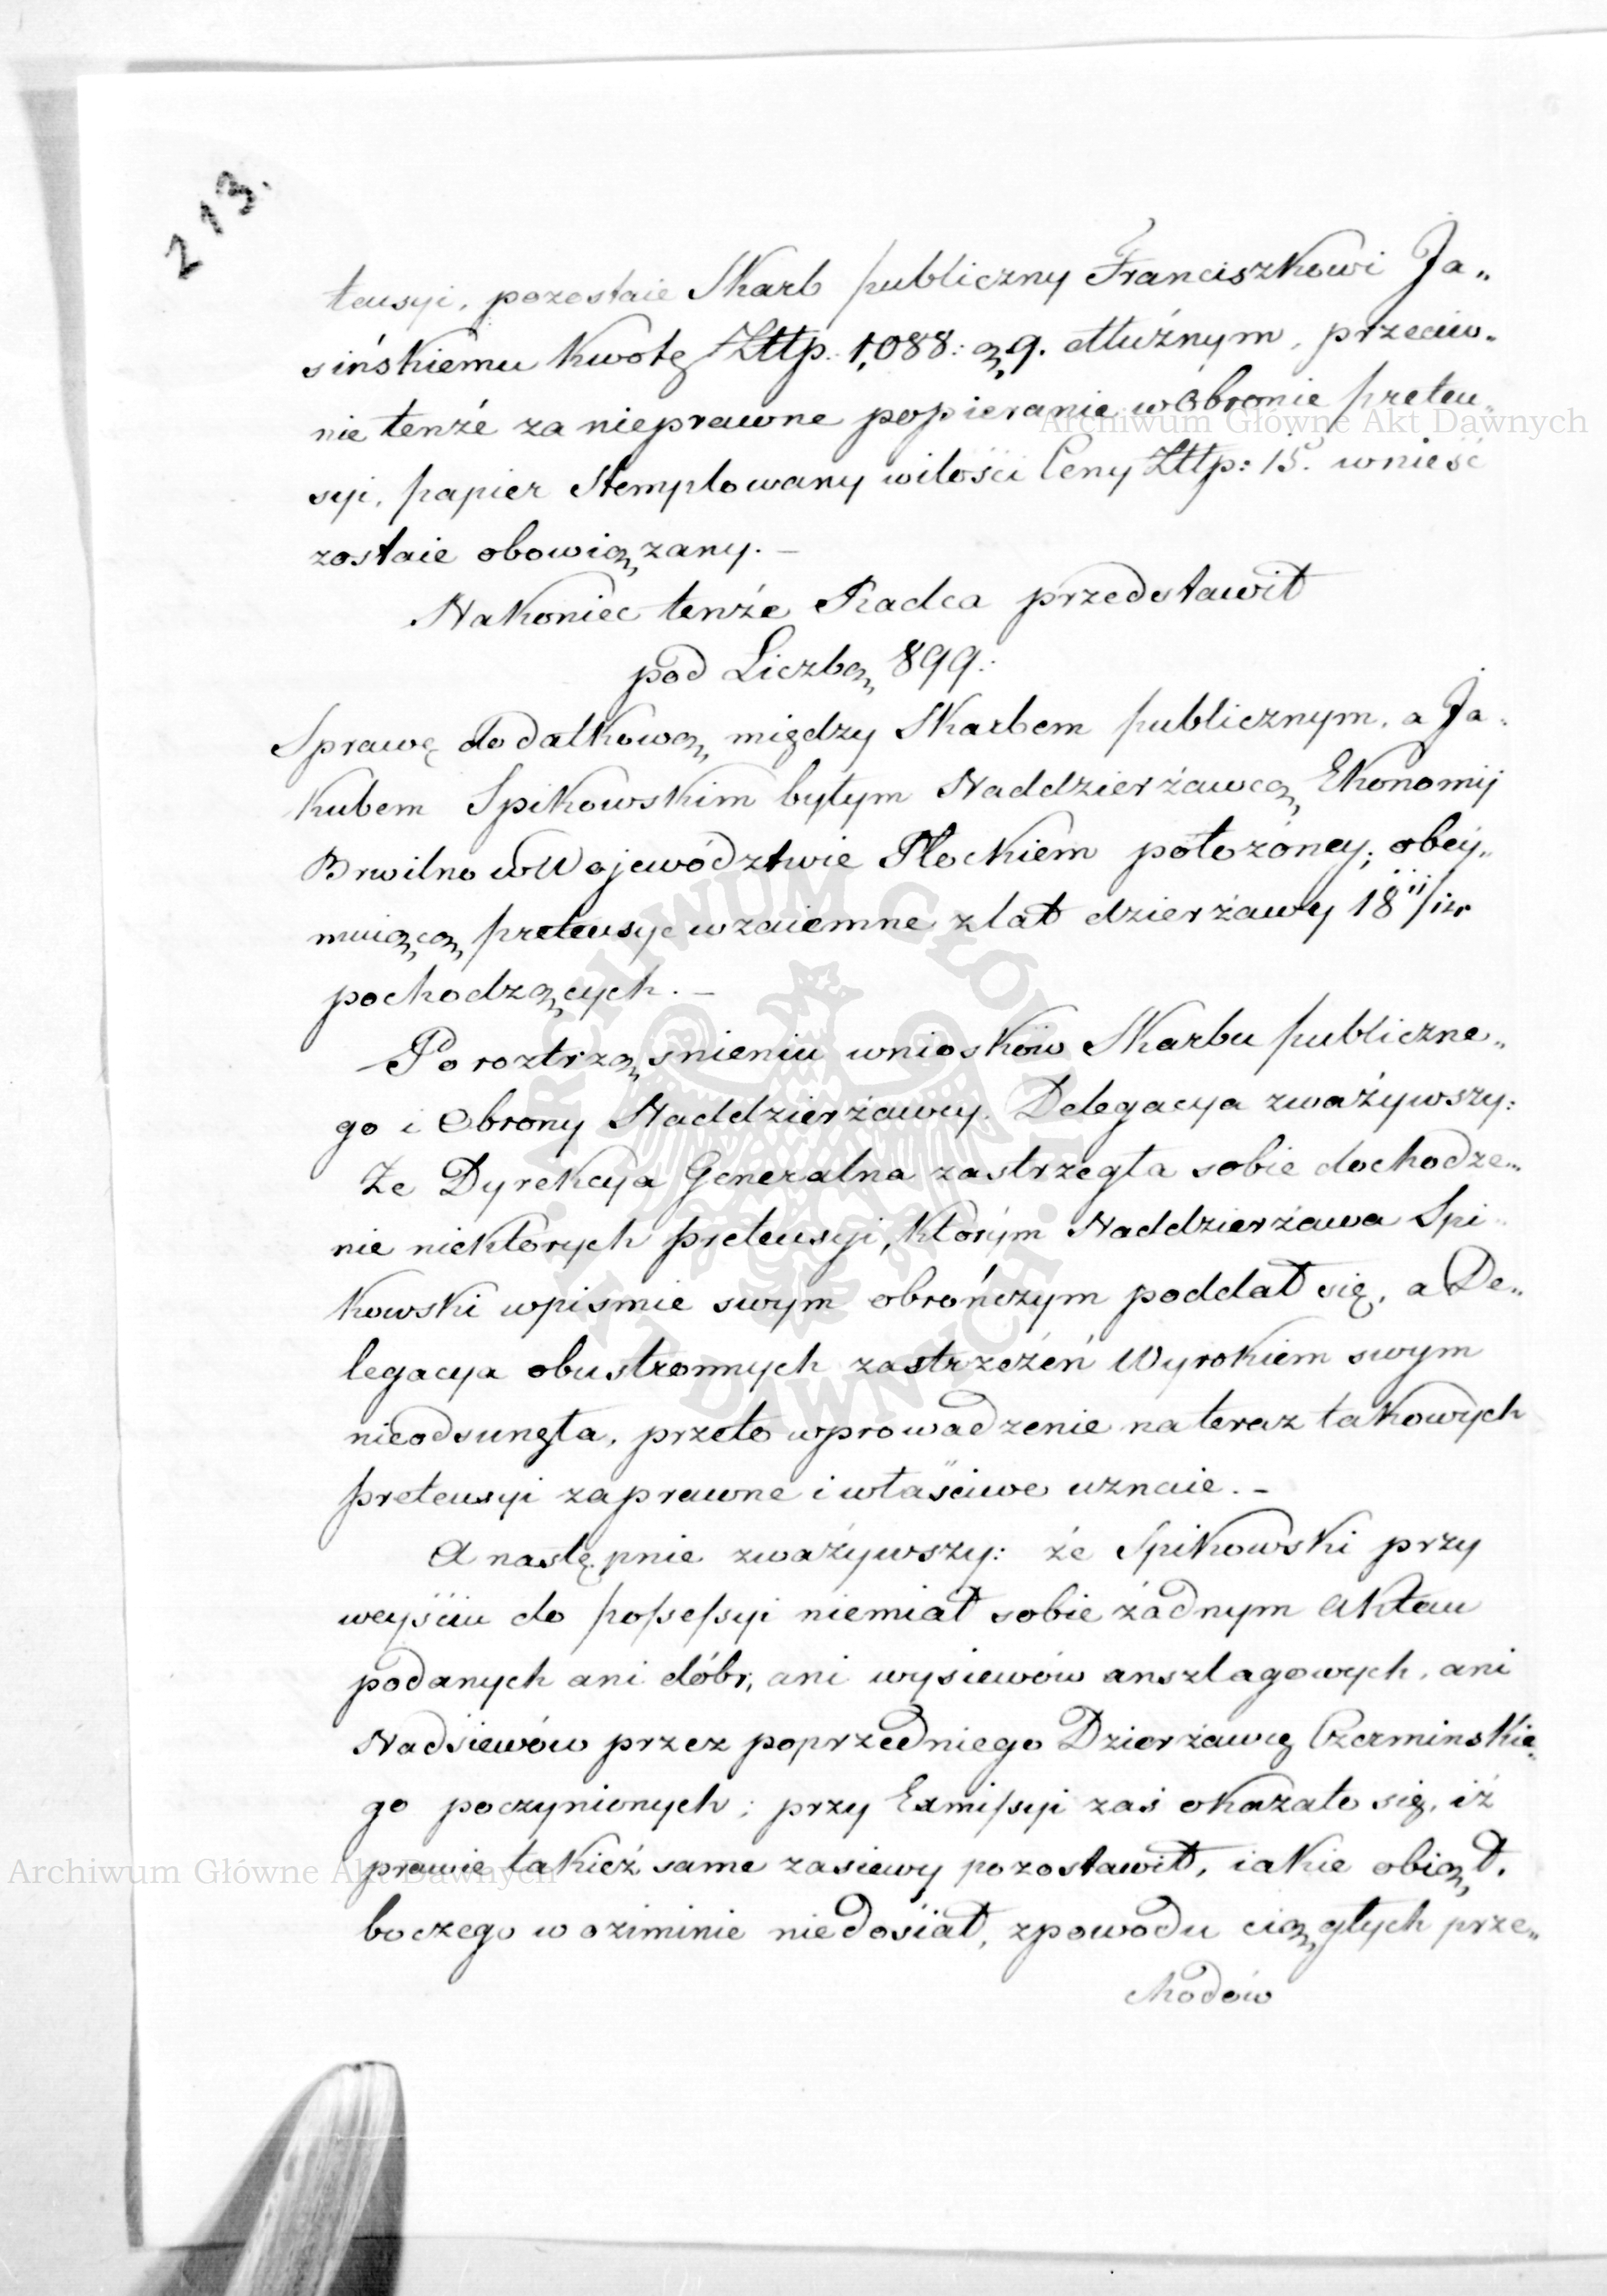 213.
tensyi, pozostaie Skarb publiczny Franciszkowi Ja„
sińskiemu kwotę Złłp. 1,088: gr 9. dłużnym, przeciw„
nie tenże za nieprawne popieranie w Obronie preten„
syi, papier Stemplowany wilości Ceny Złłp: 15. wnieść
zostaie obowiązany. —
Nakoniec tenże Radca przedstawił
pod Liczbą 899:
Sprawę dodatkową między Skarbem publicznym, a Ja„
kubem Spikowskim byłym Naddzierżawcą Ekonomij
Brwilno w Wojewódźtwie Płockiem położoney; obey„
muiącą pretensye wzaiemne z lat dzierżawy 18 11/12r
pochodzących. —
Po roztrząśnieniu wniosków Skarbu publiczne„
go i Obrony Naddzierżawcy. Delegacya zważywszy:
Że Dyrekcya Generalna zastrzegła sobie dochodze„
nie niektórych pretensyi, którym Naddzierżawa Spi„
kowski wpismie swym obrończym poddał się, a De„
legacya obustronnych zastrzeżeń Wyrokiem swym
nieodsunęła, przeto wprowadzenie na teraz takowych
pretensyi zaprawne i właściwe uznaie. —
A następnie zważywszy: że Spikowski przy
weyściu do possessyi niemiał sobie żadnym Aktem
podanych ani dóbr, ani wysiewów anszlagowych, ani
Nadsiewów przez poprzedniego Dzierżawcę Czerminskie„
go poczynionych; przy Exmissyi zaś okazało się, iż
prawie takież same zasiewy pozostawił, iakie obiął,
bo czego w oziminie niedosiał, zpowodu ciągłych prze„
chodów
Archiwum Główne Akt Dawnych
Archiwum Główne Akt Dawnych
ARCHIWUM GŁÓWNE AKT DAWNYCH